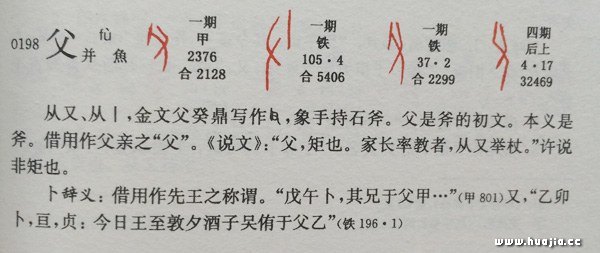 0198 父 fù 并 魚
一期 甲 2376 合 2128
一期 铁 105·4 合 5406
一期 铁 37·2 合 2299
四期 后上 4·17 32469
从又、从丨,金文父癸鼎写作,象手持石斧。父是斧的初文。本义是
斧。借用作父亲之“父”。《说文》:“父,矩也。家长率教者,从又举杖。”许说
非矩也。
卜辞义:借用作先王之称谓。“戊午卜,其兄于父甲…”(甲 801)又,“乙卯
卜,亘,贞:今日王至敦夕酒子吴侑于父乙”(铁 196·1)
www.huajia.cc